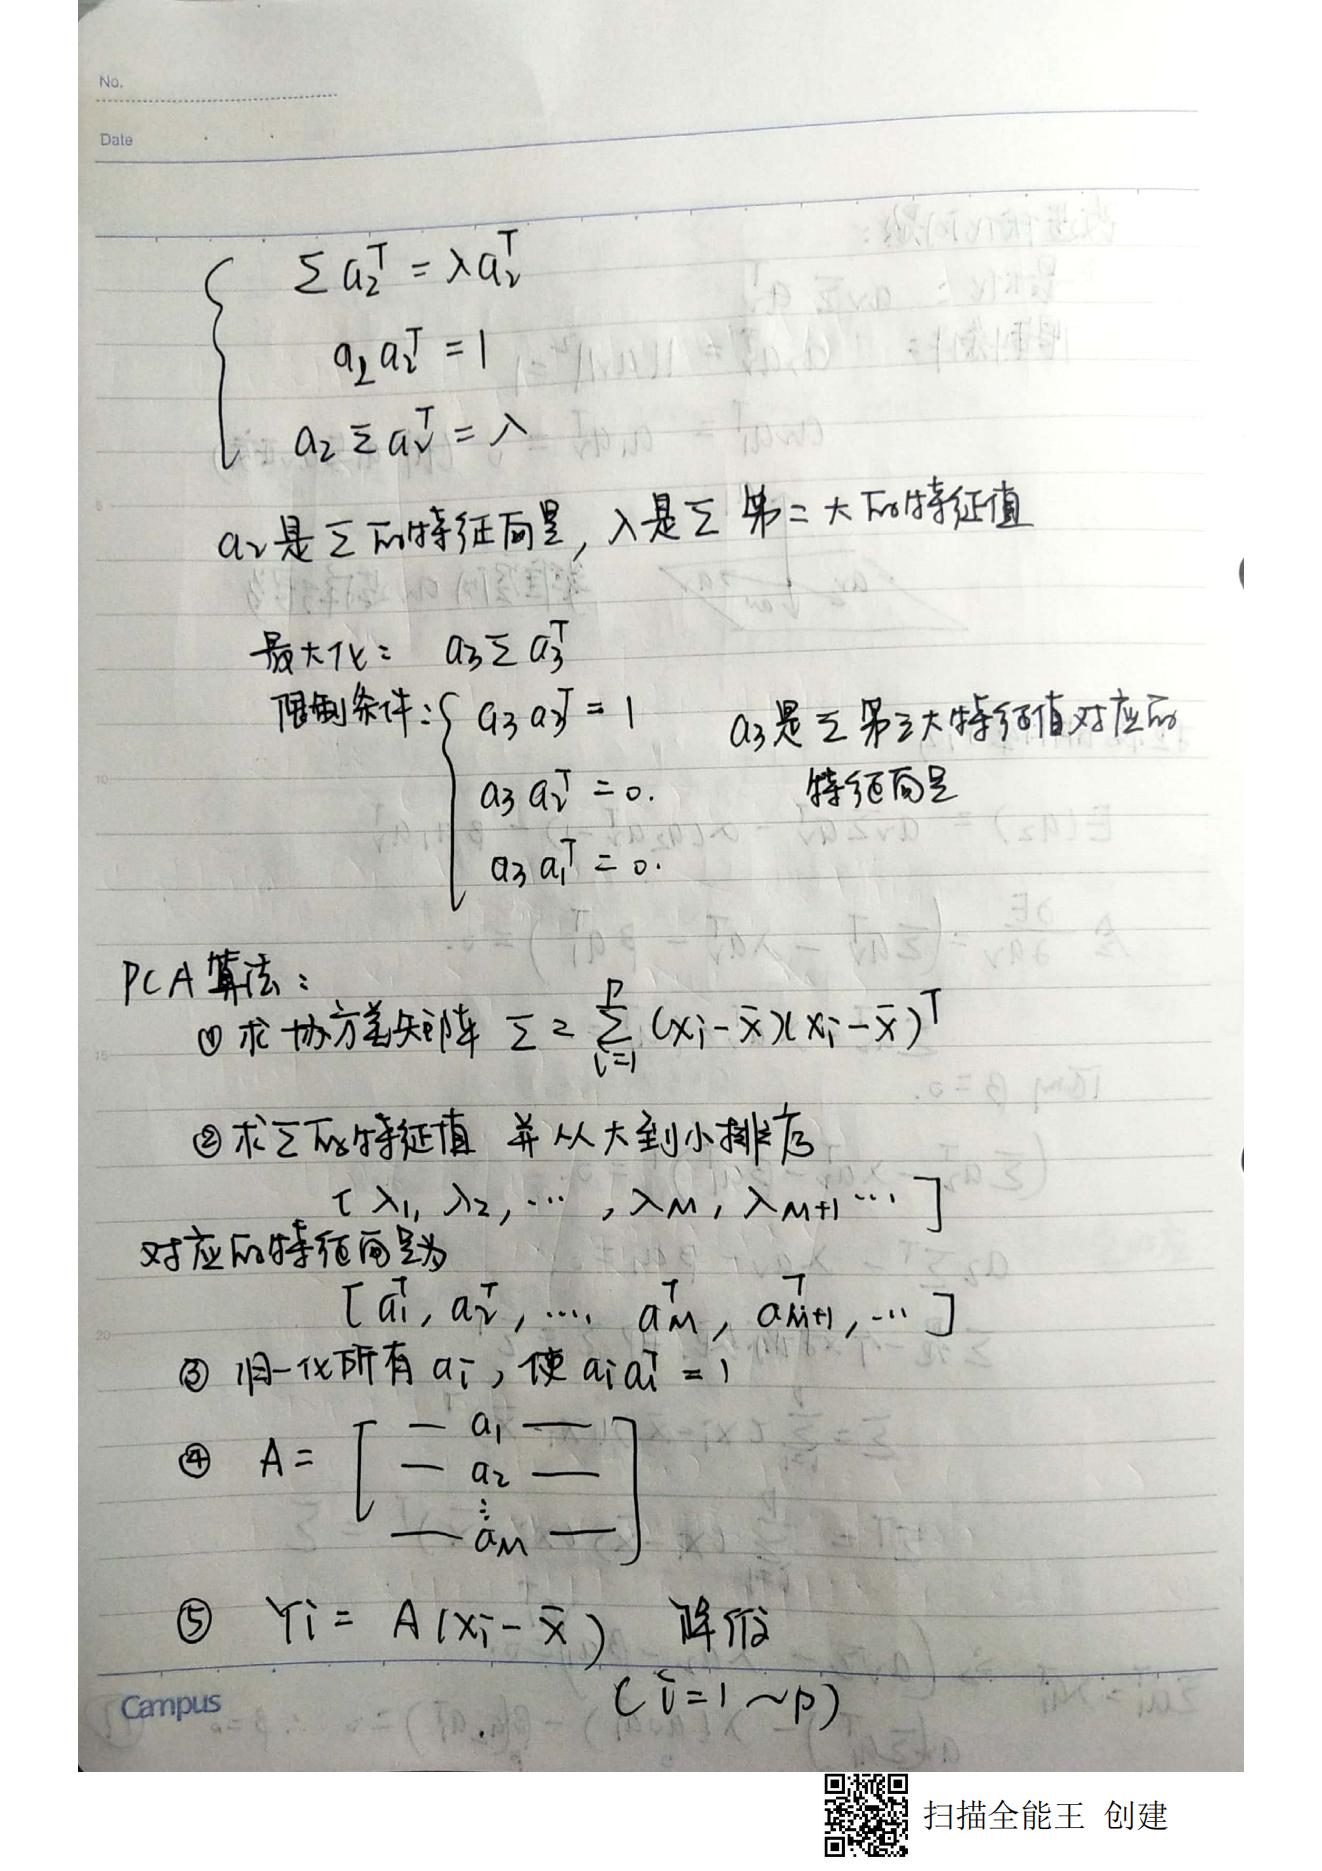 No.
Date
Σ a₂ᵀ = λ a₂ᵀ
a₂ a₂ᵀ = 1
a₂ Σ a₂ᵀ = λ
a₂是Σ的特征向量, λ是Σ第二大的特征值
最大化: a₃ Σ a₃ᵀ
限制条件: { a₃ a₃ᵀ = 1 a₃是Σ第三大特征值对应的
a₃ a₂ᵀ = 0. 特征向量
a₃ a₁ᵀ = 0.
PCA算法:
① 求协方差矩阵 Σ = ∑ᵢ₌₁ᴾ (xᵢ - x̄)(xᵢ - x̄)ᵀ
② 求Σ的特征值 并从大到小排序
[ λ₁, λ₂, ⋯ , λM, λM+1 ⋯ ]
对应的特征向量为
[ a₁ᵀ, a₂ᵀ, ⋯. aMᵀ, aM+1ᵀ, ⋯ ]
③ 归一化所有 aᵢ, 使 aᵢaᵢᵀ = 1
④ A = [ — a₁ —
— a₂ —
⋮
— aM — ]
⑤ Yᵢ = A(xᵢ - x̄) 降维
(i=1~P)
Campus
扫描全能王 创建